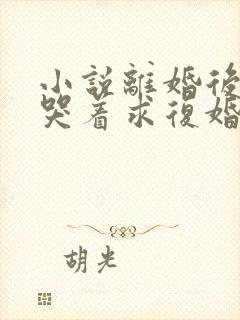 小說離婚後
哭着求復婚
胡光